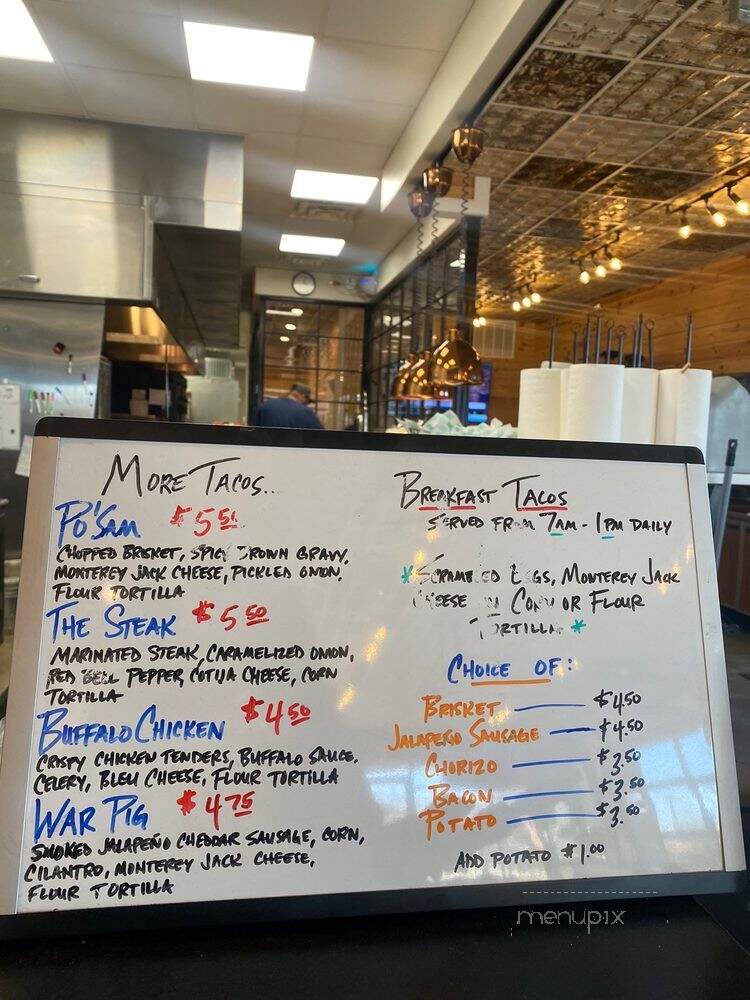 MORE TACOS...
PO'SAM $5.50
CHOPPED BRISKET, SPICY BROWN GRAVY,
MONTEREY JACK CHEESE, PICKLED ONION,
FLOUR TORTILLA
THE STEAK $5.50
MARINATED STEAK, CARAMELIZED ONION,
RED BELL PEPPER, COTIJA CHEESE, CORN
TORTILLA
BUFFALO CHICKEN $4.50
CRISPY CHICKEN TENDERS, BUFFALO SAUCE,
CELERY, BLEU CHEESE, FLOUR TORTILLA
WAR PIG $4.75
SMOKED JALAPEÑO CHEDDAR SAUSAGE, CORN,
CILANTRO, MONTEREY JACK CHEESE,
FLOUR TORTILLA
BREAKFAST TACOS
SERVED FROM 7AM - 1PM DAILY
*SCRAMBLED EGGS, MONTEREY JACK
CHEESE IN CORN OR FLOUR
TORTILLA *
CHOICE OF:
BRISKET — $4.50
JALAPEÑO SAUSAGE — $4.50
CHORIZO — $3.50
BACON — $3.50
POTATO — $3.50
ADD POTATO $1.00
menupix